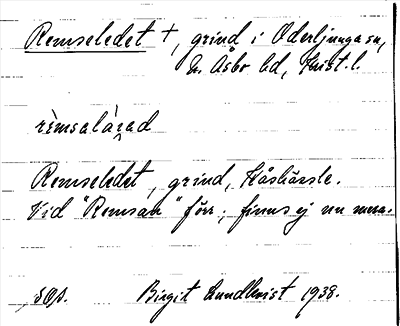 Remseledet †, grind i Oderljunga sn,
N. Åsbo hd, Krist. l.
rèmsalàʒad
Remseledet, grind, Kåshässle.
Vid "Remsan" förr; finns ej nu mera.
SOA. Birgit Lundkvist 1938.